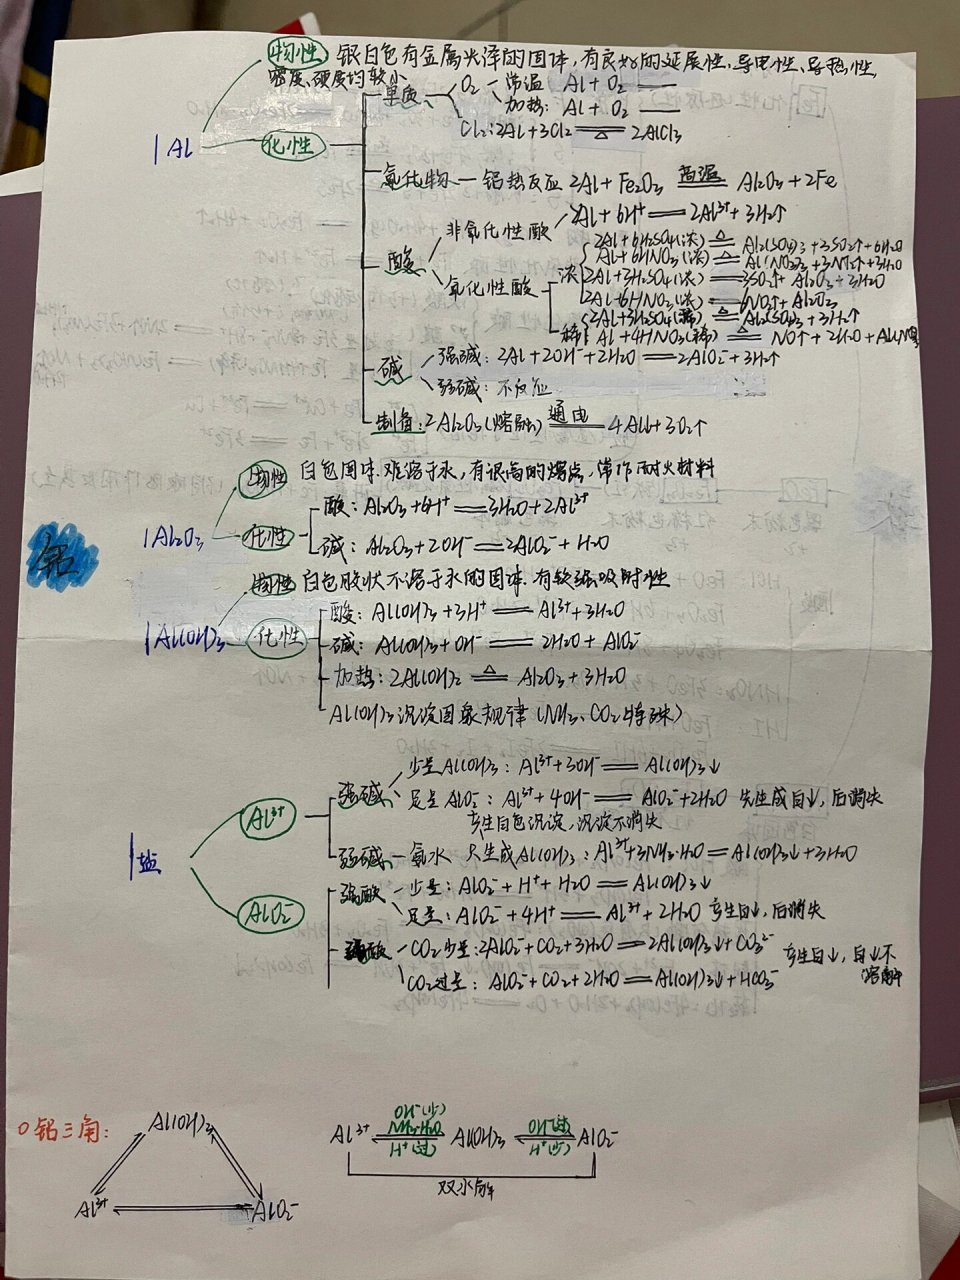 物性 银白色有金属光泽的固体,有良好的延展性、导电性、导热性,
密度、硬度均较小
单质 O₂ 常温 Al + O₂ ——
加热: Al + O₂ ——
Cl₂: 2Al + 3Cl₂ =△= 2AlCl₃
Al 化性
氧化物 — 铝热反应 2Al + Fe₂O₃ =高温= Al₂O₃ + 2Fe
酸 非氧化性酸 2Al + 6H⁺ == 2Al³⁺ + 3H₂↑
氧化性酸 浓 2Al + 6H₂SO₄(浓) =△= Al₂(SO₄)₃ + 3SO₂↑ + 6H₂O
Al + 6HNO₃(浓) =△= Al(NO₃)₃ + 3NO₂↑ + 3H₂O
2Al + 3H₂SO₄(浓) == 3SO₂↑ + Al₂O₃ + 3H₂O
2Al + 6HNO₃(浓) == 6NO₂↑ + Al₂O₃
稀 2Al + 3H₂SO₄(稀) == Al₂(SO₄)₃ + 3H₂↑
Al + 4HNO₃(稀) =△= NO↑ + 2H₂O +
碱 强碱: 2Al + 2OH⁻ + 2H₂O == 2AlO₂⁻ + 3H₂↑
弱碱: 不反应
制备: 2Al₂O₃(熔融) =通电= 4Al + 3O₂↑
铝
Al₂O₃ 物性 白色固体.难溶于水,有很高的熔点,常作耐火材料
化性 酸: Al₂O₃ + 6H⁺ == 3H₂O + 2Al³⁺
碱: Al₂O₃ + 2OH⁻ == 2AlO₂⁻ + H₂O
Al(OH)₃ 物性 白色胶状不溶于水的固体.有较强吸附性
化性 酸: Al(OH)₃ + 3H⁺ == Al³⁺ + 3H₂O
碱: Al(OH)₃ + OH⁻ == 2H₂O + AlO₂⁻
加热: 2Al(OH)₃ =△= Al₂O₃ + 3H₂O
Al(OH)₃沉淀图象规律 (NH₃、CO₂特殊)
盐 Al³⁺ 强碱 少量Al(OH)₃: Al³⁺ + 3OH⁻ == Al(OH)₃↓
足量AlO₂⁻: Al³⁺ + 4OH⁻ == AlO₂⁻ + 2H₂O 先生成白↓, 后消失
产生白色沉淀, 沉淀不消失
弱碱 — 氨水 只生成Al(OH)₃: Al³⁺ + 3NH₃·H₂O == Al(OH)₃↓ +
AlO₂⁻ 强酸 少量: AlO₂⁻ + H⁺ + H₂O == Al(OH)₃↓
足量: AlO₂⁻ + 4H⁺ == Al³⁺ + 2H₂O 产生白↓, 后消失
弱酸 CO₂少量: 2AlO₂⁻ + CO₂ + 3H₂O == 2Al(OH)₃↓ + CO₃²⁻ 产生白↓, 白↓不
溶解
CO₂过量: AlO₂⁻ + CO₂ + 2H₂O == Al(OH)₃↓ + HCO₃⁻
铝三角:
Al(OH)₃
Al³⁺ AlO₂⁻
OH⁻(少)
NH₃·H₂O OH⁻(过)
Al³⁺ Al(OH)₃ AlO₂⁻
H⁺(过) H⁺(少)
双水解